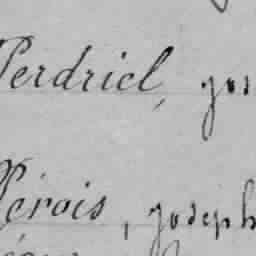 Perdriel, jos
Pérois, joseph